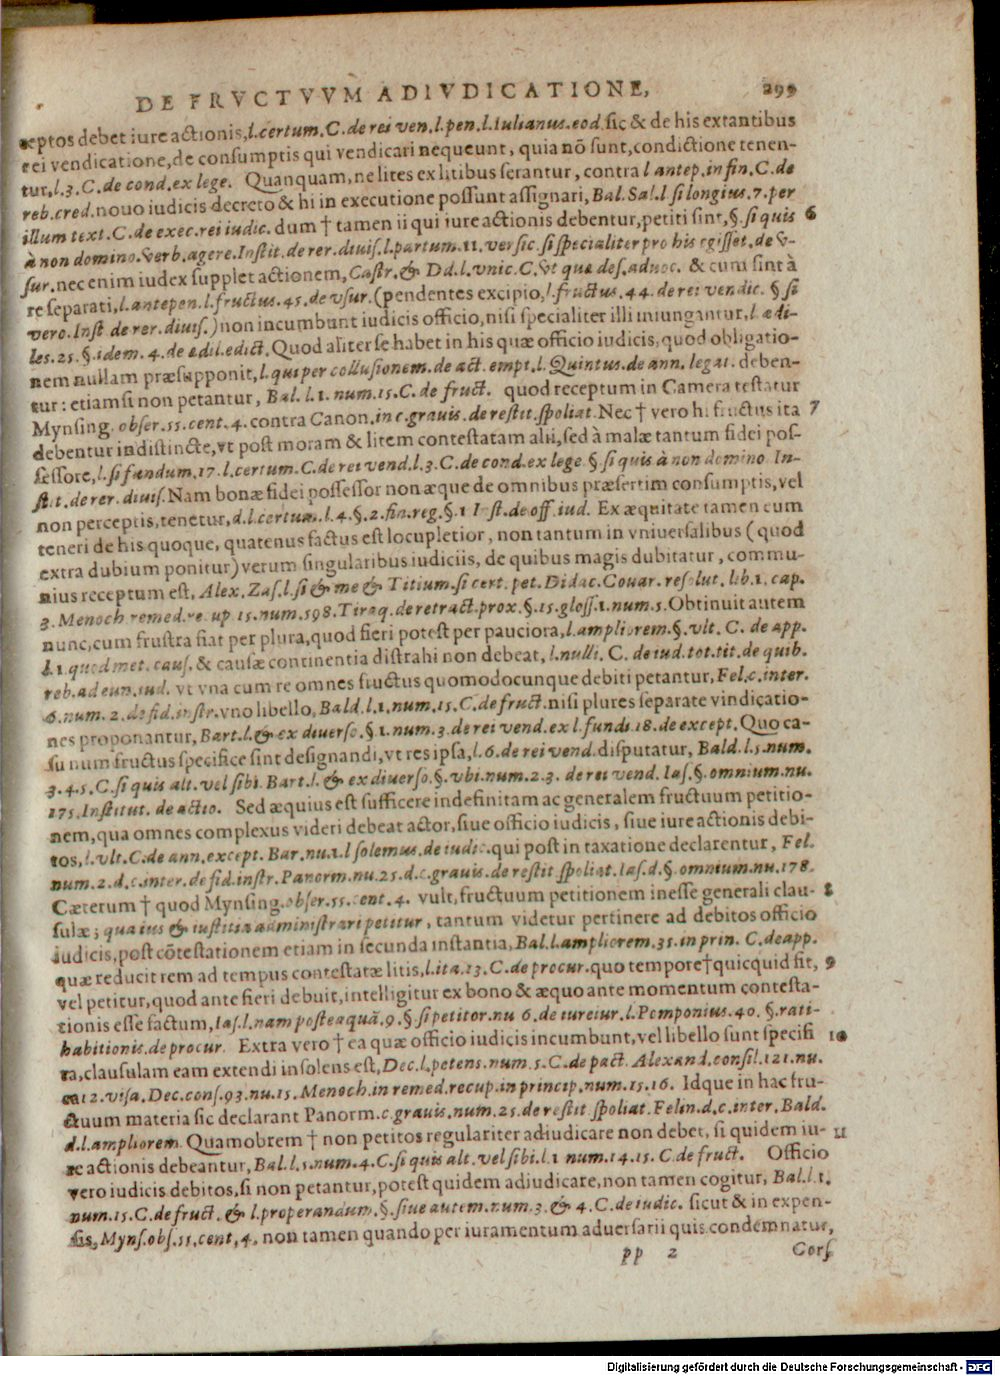 DE FRVCTVVM ADIVDICATIONE, 299
ceptos debet iure actionis, l. certum. C. de rei ven. l. pen. l. Iulianus. eod. sic & de his extantibus
rei vendicatione, de consumptis qui vendicari nequeunt, quia nõ sunt, condictione tenen-
tur, l. 3. C. de cond. ex lege. Quanquam, ne lites ex litibus serantur, contra l antep. in fin. C. de
reb. cred. nouo iudicis decreto & hi in executione possunt assignari, Bal. Sal. l si longius. 7. per
illum text. C. de exec. rei iudic. dum † tamen ii qui iure actionis debentur, petiti sint, §. si quis 6
à non domino. verb. agere. Instit. de rer. diuis. l. partum. 11. versic. si specialiter pro his egisset. de v-
sur. nec enim iudex supplet actionem, Castr. & Dd. l. vnic. C. vt quæ des. aduoc. & cum sint à
re separati, l. antepen. l. fructus. 45. de vsur. (pendentes excipio, l. fructus. 44. de rei vendic. § si
vero. Inst de rer. diuis.) non incumbunt iudicis officio, nisi specialiter illi iniungantur, l ædi-
les. 25. §. idem. 4. de ædil. edict. Quod aliter se habet in his quæ officio iudicis, quod obligatio-
nem nullam præsupponit, l. qui per collusionem. de act. empt. l. Quintus. de ann. legat. deben-
tur: etiamsi non petantur, Bal. l. 1. num. 15. C. de fruct. quod receptum in Camera testatur
Mynsing. obser. 55. cent. 4. contra Canon. in c. grauis. de restit. spoliat. Nec † vero hi fructus ita 7
debentur indistincte, vt post moram & litem contestatam alii, sed à malæ tantum fidei pos-
sessore, l. si fundum. 17. l. certum. C. de rei vend. l. 3. C. de cond. ex lege. § si quis à non domino. In-
stit. de rer. diuis. Nam bonæ fidei possessor non æque de omnibus præsertim consumptis, vel
non perceptis, tenetur, d. l. certum. l. 4. §. 2. fin. reg. §. 1 Inst. de off. iud. Ex æquitate tamen eum
teneri de his quoque, quatenus factus est locupletior, non tantum in vniuersalibus (quod
extra dubium ponitur) verum singularibus iudiciis, de quibus magis dubitatur, commu-
nius receptum est, Alex. Zas. l. si & me & Titium. si cert. pet. Didac. Couar. resolut. lib. 1. cap.
3. Menoch remed. re. up 15. num. 598. Tiraq. de retract. prox. §. 15. gloss. 1. num. 5. Obtinuit autem
nunc, cum frustra fiat per plura, quod fieri potest per pauciora, l. ampliorem. §. vlt. C. de app.
l. 1. quod met. caus. & causæ continentia distrahi non debeat, l. nulli. C. de iud. tot. tit. de quib.
reb. ad eun. iud. vt vna cum re omnes fructus quomodocunque debiti petantur, Fel. c. inter.
6. num. 2. de fid. instr. vno libello, Bald. l. 1. num. 15. C. de fruct. nisi plures separate vindicatio-
nes proponantur, Bart. l. & ex diuerso. §. 1. num. 3. de rei vend. ex l. fundi. 18. de except. Quo ca-
su num fructus specifice sint designandi, vt res ipsa, l. 6. de rei vend. disputatur, Bald. l. 5. num.
3. 4. 5. C. si quis alt. vel sibi. Bart. l. & ex diuerso. §. vbi. num. 2. 3. de rei vend. Ias. §. omnium. nu.
175. Institut. de actio. Sed æquius est sufficere indefinitam ac generalem fructuum petitio-
nem, qua omnes complexus videri debeat actor, siue officio iudicis, siue iure actionis debi-
tos, l. vlt. C. de ann. except. Bar. nu. 1. l solemus. de iudic. qui post in taxatione declarentur, Fel.
num. 2. d. c. inter. de fid. instr. Panorm. nu. 25. d. c. grauis. de restit spoliat. Ias. d. §. omnium. nu. 178.
Cæterum † quod Mynsing. obser. 55. cent. 4. vult, fructuum petitionem inesse generali clau- 8
sulæ; qua ius & iustitia administrari petitur, tantum videtur pertinere ad debitos officio
iudicis, post cõtestationem etiam in secunda instantia, Bal. l. ampliorem. 31. in prin. C. de app.
quæ reducit rem ad tempus contestatæ litis, l. ita. 23. C. de procur. quo tempore † quicquid fit, 9
vel petitur, quod ante fieri debuit, intelligitur ex bono & æquo ante momentum contesta-
tionis esse factum, Ias. l. nam postea quã. 9. § si petitor. nu 6. de iureiur. l. Pomponius. 40. §. rati-
habitionis. de procur. Extra vero † ea quæ officio iudicis incumbunt, vel libello sunt specifi 10
ca, clausulam eam extendi insolens est, Dec. l. petens. num. 5. C. de pact. Alexand. consil. 121. nu.
12. visa. Dec. cons. 93. nu. 15. Menoch. in remed. recup. in princip. num. 15. 16. Idque in hac fru-
ctuum materia sic declarant Panorm. c. grauis. num. 25. de restit spoliat. Felin. d. c. inter. Bald.
d. l. ampliorem. Quamobrem † non petitos regulariter adiudicare non debet, si quidem iu- 11
re actionis debeantur, Bal. l. 5. num. 4. C. si quis alt. vel sibi. l. 1 num. 14. 15. C. de fruct. Officio
vero iudicis debitos, si non petantur, potest quidem adiudicare, non tamen cogitur, Bal. l. 1.
num. 15. C. de fruct. & l. properandum. §. siue autem. num. 3. & 4. C. de iudic. sicut & in expen-
sis, Myns. obs. 55. cent, 4. non tamen quando per iuramentum aduersarii quis condemnatur,
pp 2 Cors
Digitalisierung gefördert durch die Deutsche Forschungsgemeinschaft - DFG